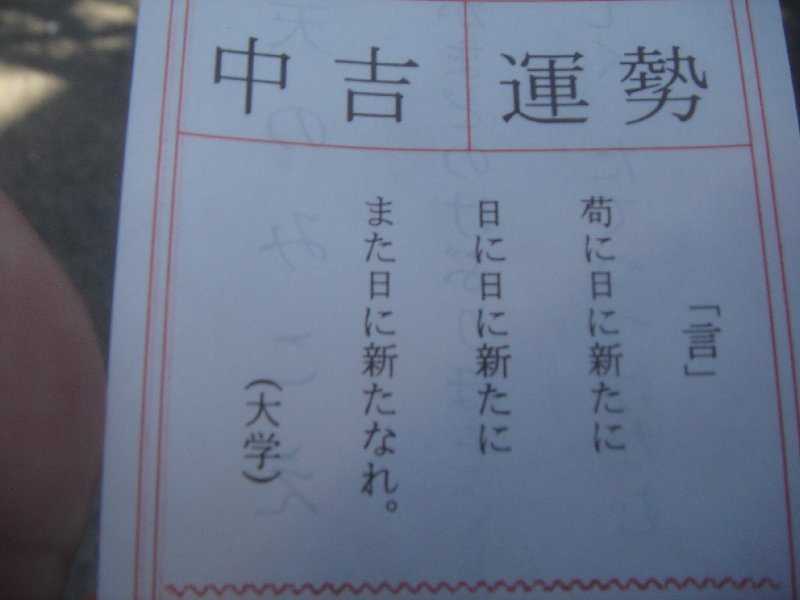 運勢
中吉
「言」
苟に日に新たに
日に日に新たに
また日に新たなれ。
(大学)